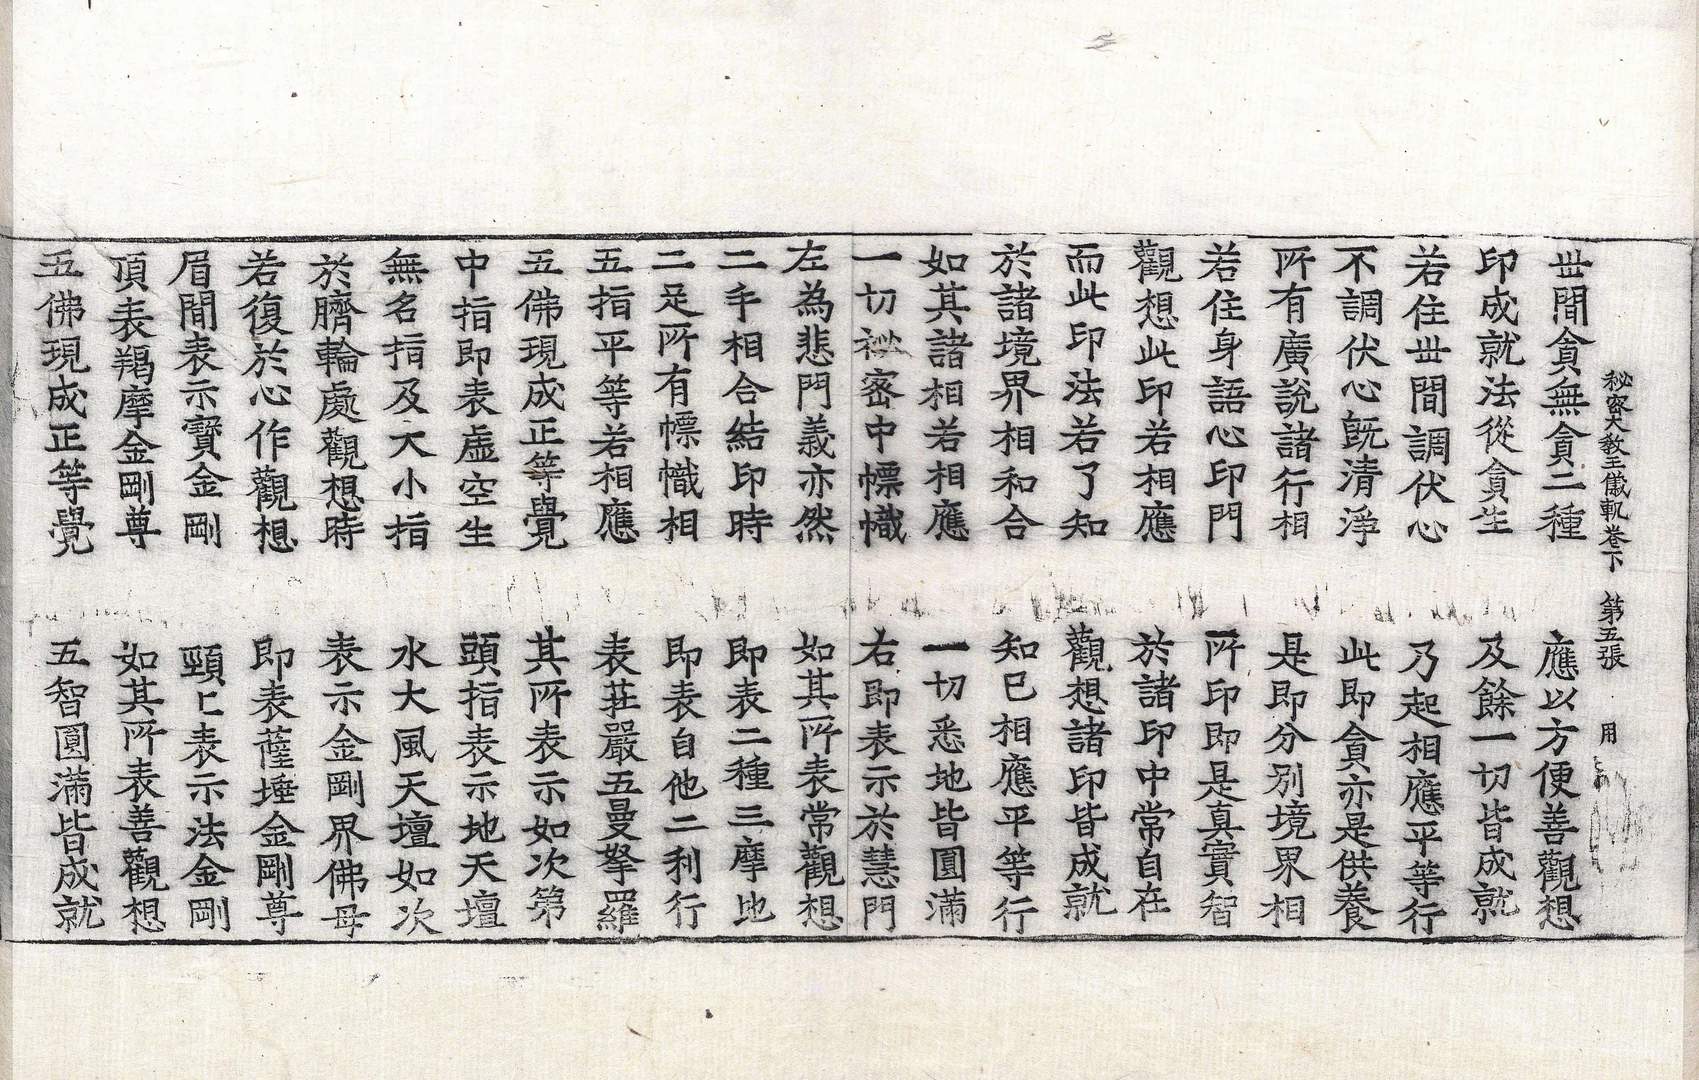 秘密大教王儀軌卷下　第五張　用
世間貪無貪二種　應以方便善觀想
印成就法從貪生　及餘一切皆成就
若住世間調伏心　乃起相應平等行
不調伏心旣清淨　此即貪亦是供養
所有廣說諸行相　是即分別境界相
若住身語心印門　所印即是真實智
觀想此印若相應　於諸印中常自在
而此印法若了知　觀想諸印皆成就
於諸境界相和合　知已相應平等行
如其諸相若相應　一切悉地皆圓滿
一切祕密中幖幟　右即表示於慧門
左為悲門義亦然　如其所表常觀想
二手相合結印時　即表二種三摩地
二足所有幖幟相　即表自他二利行
五指平等若相應　表莊嚴五曼拏羅
五佛現成正等覺　其所表示如次第
中指即表虛空生　頭指表示地天壇
無名指及大小指　水大風天壇如次
於臍輪處觀想時　表示金剛界佛母
若復於心作觀想　即表薩埵金剛尊
眉間表示寶金剛　頸上表示法金剛
頂表羯摩金剛尊　如其所表善觀想
五佛現成正等覺　五智圓滿皆成就